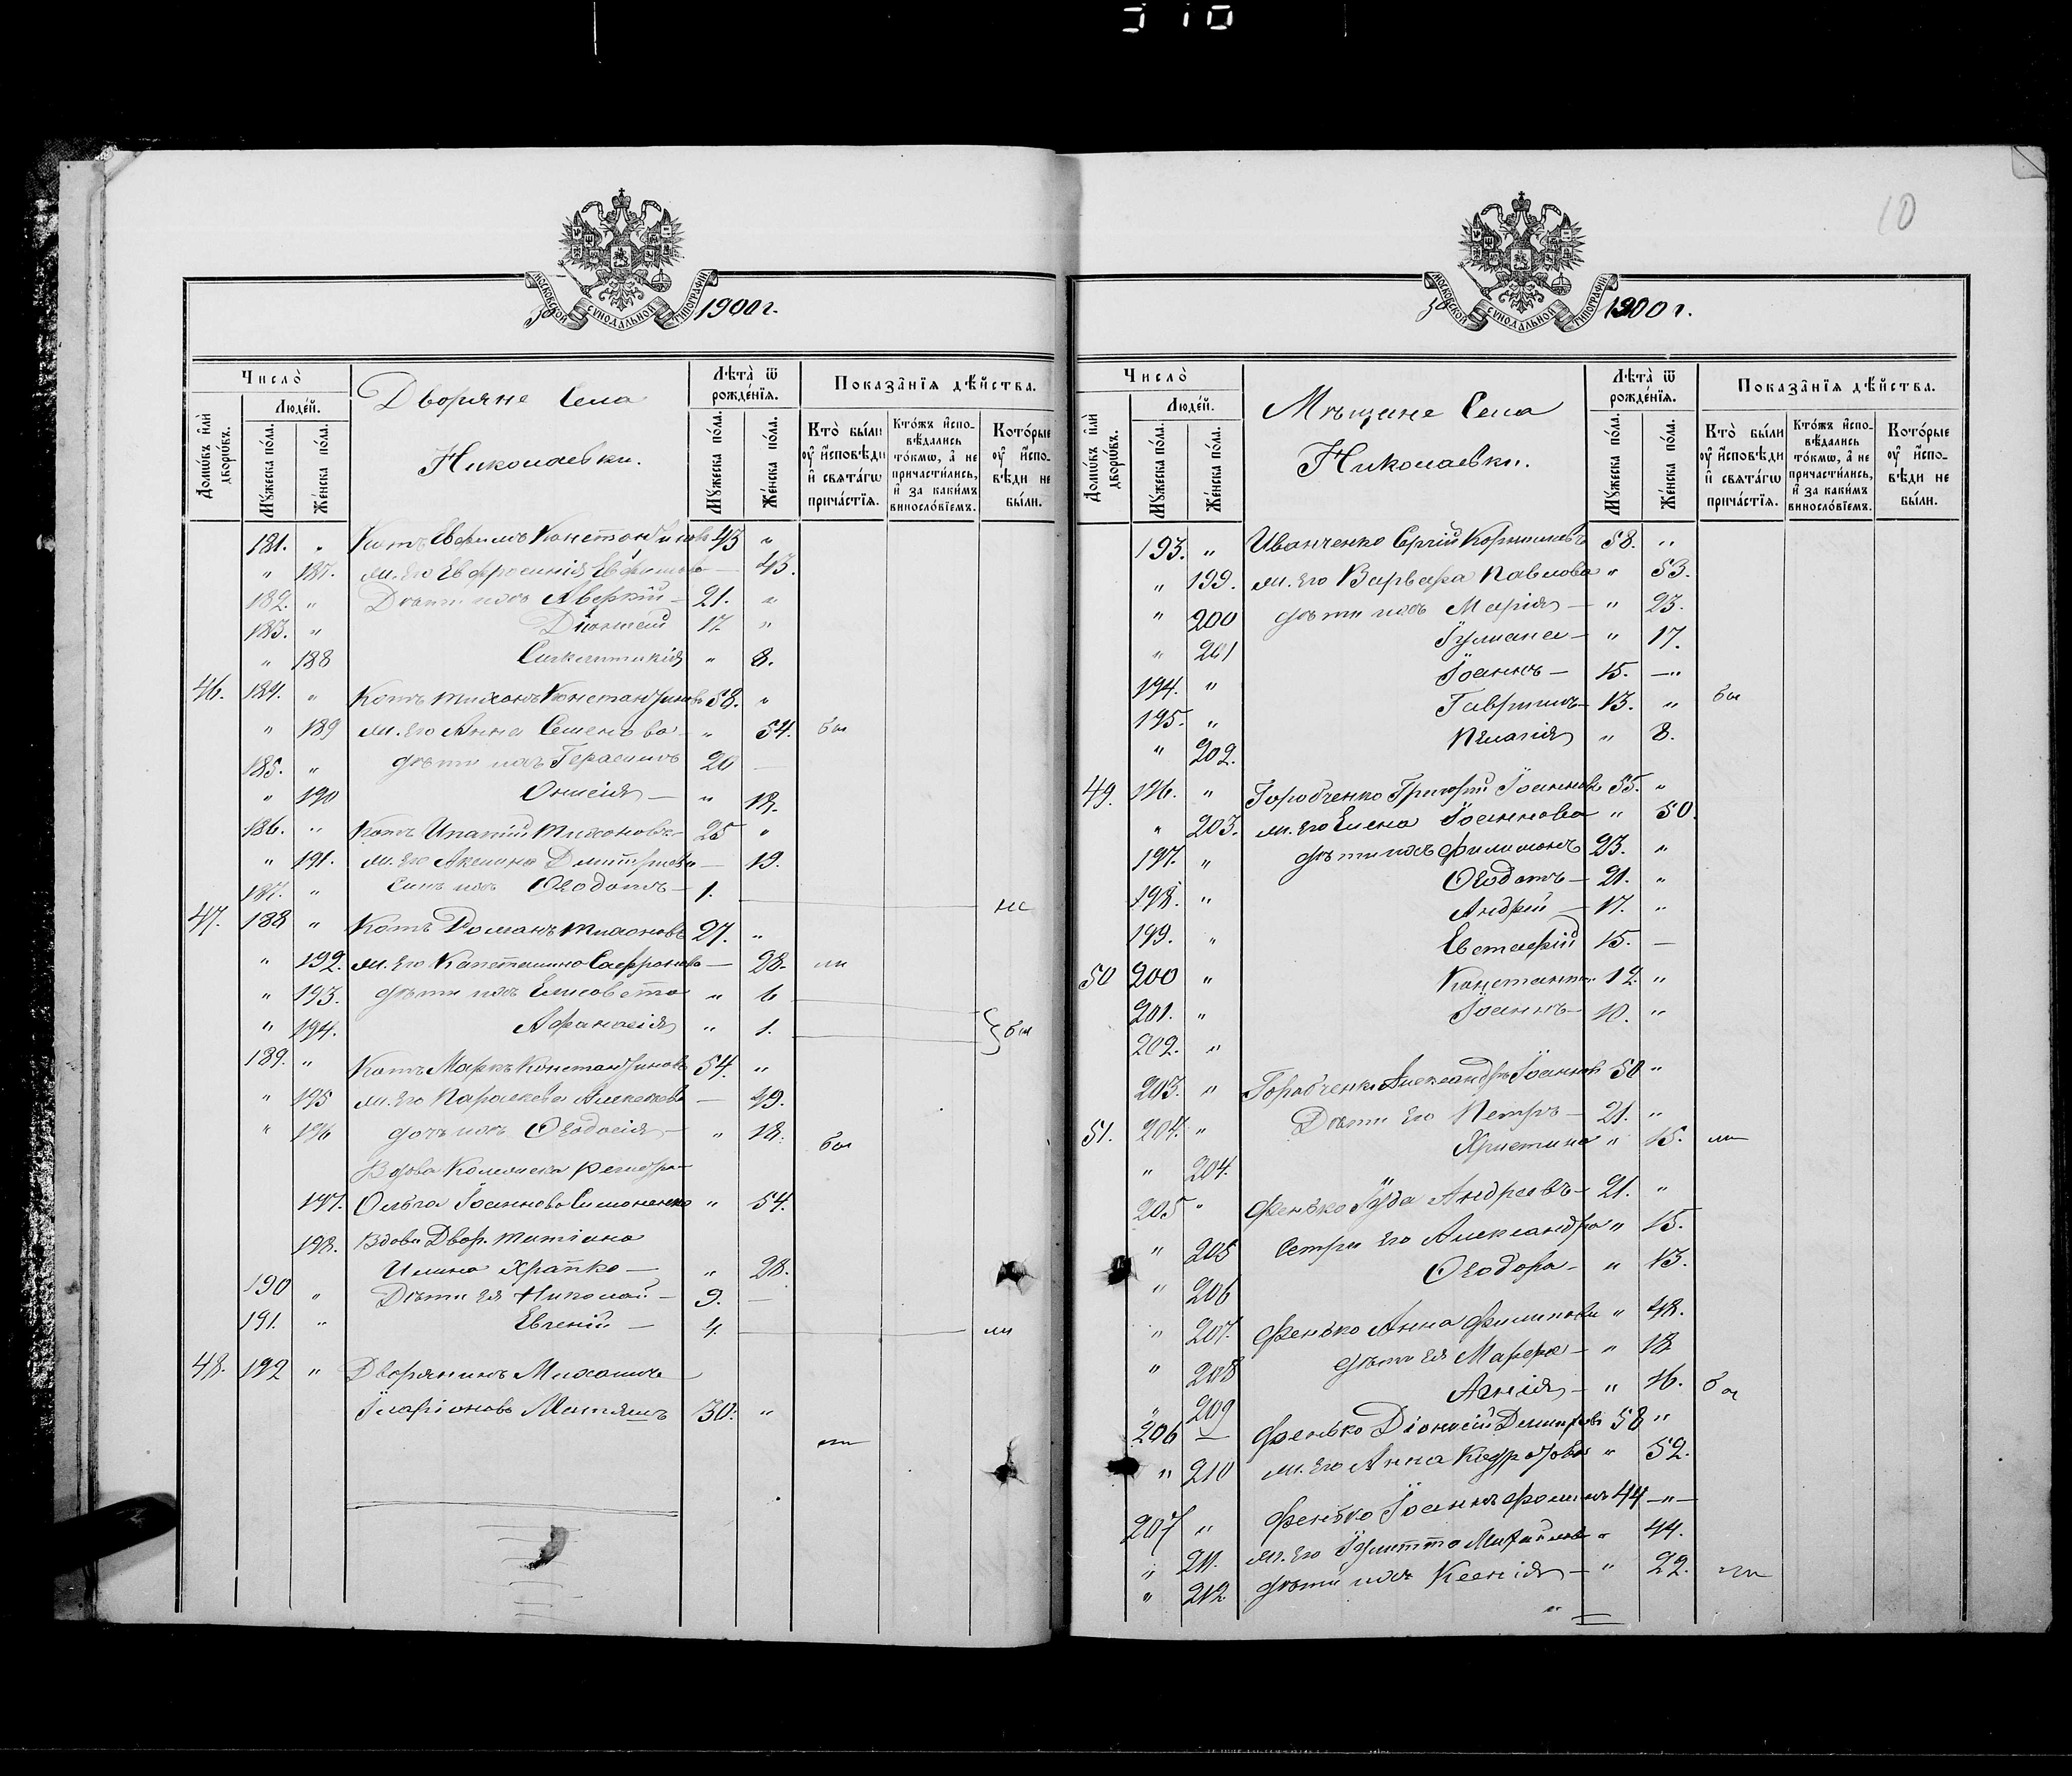 10
МОСКОВСКОЙ СѴНОДАЛЬНОЙ ТИПОГРАФІИ
За 1900 г.
Число̀
Дворяне Села
Лѣта̀ ѿ рожде́нїѧ.
Показа̑нїѧ дѣ́йства.
Люде́й.
Николаевки.
Домѡ́въ и҆лѝ дворѡ́въ.
Мꙋ́жеска по́ла.
Же́нска по́ла.
Мꙋ́жеска по́ла.
Же́нска по́ла.
Кто̀ бы́ли оу҆ и҆́сповѣди и҆ свѧта́гѡ прича́стїѧ.
Кто́жъ и҆спо-вѣ́дались то́кмѡ, а҆ не причасти́лись, и҆ за каки́мъ виносло́вїемъ.
Кото́рые оу҆ и҆́спо-вѣди не бы́ли.
181. " Котъ Евфимъ Константиновъ 43 "
" 187. ж. его Евфросинія Ефимова — 43.
182. " Дѣти ихъ Аверкій — 21. "
183. " Діонисій 17. "
" 188 Синклитикія " 8.
46. 184. " Котъ Тихонъ Константиновъ 58. "
" 189 ж. его Анна Семенова " 54. бы
185. " дѣти ихъ Герасимъ 20 —
" 190 Онисія — " 18.
186. " Котъ Ипатій Тихоновъ 25 "
" 191. ж. его Акелина Димитріева — 19.
187. " Сынъ ихъ Ѳеодотъ — 1.
47. 188 " Котъ Романъ Тихоновъ 27. "
" 192. ж. его Капетолина Сафронова — 28. ли
" 193. дѣти ихъ Елисавета " 6
" 194. Афанасія " 1. бы
189. " Котъ Маркъ Константиновъ 54. "
" 195 ж. его Параскева Алексѣева — 49.
" 196 дочь ихъ Ѳеодосія — " 18. бы
Вдова Коллежск. Регистра-
197. Ольга Іоаннова Симоненко " 54.
198. Вдова Двор. Татіана
Ильина Храпко — " 28.
190 " Дѣти ея Николай — 9. —
191. " Евгеній — 4. ли
48. 192 " Дворянинъ Михаилъ
Иларіоновъ Матяшъ 30. "
ли
МОСКОВСКОЙ СѴНОДАЛЬНОЙ ТИПОГРАФІИ
За 1900 г.
Число̀
Мѣщане Села
Лѣта̀ ѿ рожде́нїѧ.
Показа̑нїѧ дѣ́йства.
Люде́й.
Николаевки.
Домѡ́въ и҆лѝ дворѡ́въ.
Мꙋ́жеска по́ла.
Же́нска по́ла.
Мꙋ́жеска по́ла.
Же́нска по́ла.
Кто̀ бы́ли оу҆ и҆́сповѣди и҆ свѧта́гѡ прича́стїѧ.
Кто́жъ и҆спо-вѣ́дались то́кмѡ, а҆ не причасти́лись, и҆ за каки́мъ виносло́вїемъ.
Кото́рые оу҆ и҆́спо-вѣди не бы́ли.
193. " Иванченко Сергій Корниліевъ 58. "
" 199. ж. его Варвара Павлова " 53.
" 200 дѣти ихъ Марія — " 23.
" 201 Іуліана — " 17.
194. " Іоаннъ — 15. — "
195. " Гавріилъ — 13. " бы
" 202. Пелагія " 8.
49. 196. " Горобченко Григорій Іоанновъ 55. "
" 203. ж. его Елена Іоаннова " 50.
197. " дѣти ихъ Филимонъ 23. "
198. " Ѳеодотъ — 21. "
199. " Андрей — 17. "
50 200 " Евстафій 15. —
201. " Константинъ 12. "
202. " Іоаннъ — 10. "
203. " Горобченко Александръ Іоанновъ 50 "
51. 204. " Дѣти его Петръ — 21. "
" 204. Христина " 15. ли
205 " Фенько Іуда Андреевъ — 21. "
" 205 Сестры его Александра " 15.
" 206 Ѳеодора — " 13.
" 207. Фенько Анна Филипова " 48.
" 208 дѣти ея Марфа — " 18
" 209 Агнія — " 16. бы
206 — Фенько Діонисій Димитріевъ 58 "
" 210 ж. его Анна Кодратова " 52.
207 " Фенько Іоаннъ Фоминъ 44 — " —
" 211. ж. его Іулитта Михайлова " 44.
" 212 дѣти ихъ Ксенія — " 22. ли